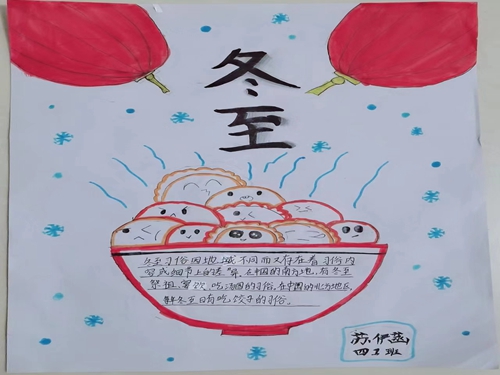 冬至
冬至习俗因地域不同而又存在着习俗内
容或细节上的差异。在中国的南方地,有冬至
祭祖、宴饮、吃汤圆的习俗。在中国的北方地区,
每年冬至日有吃饺子的习俗。
苏伊菡
四1班